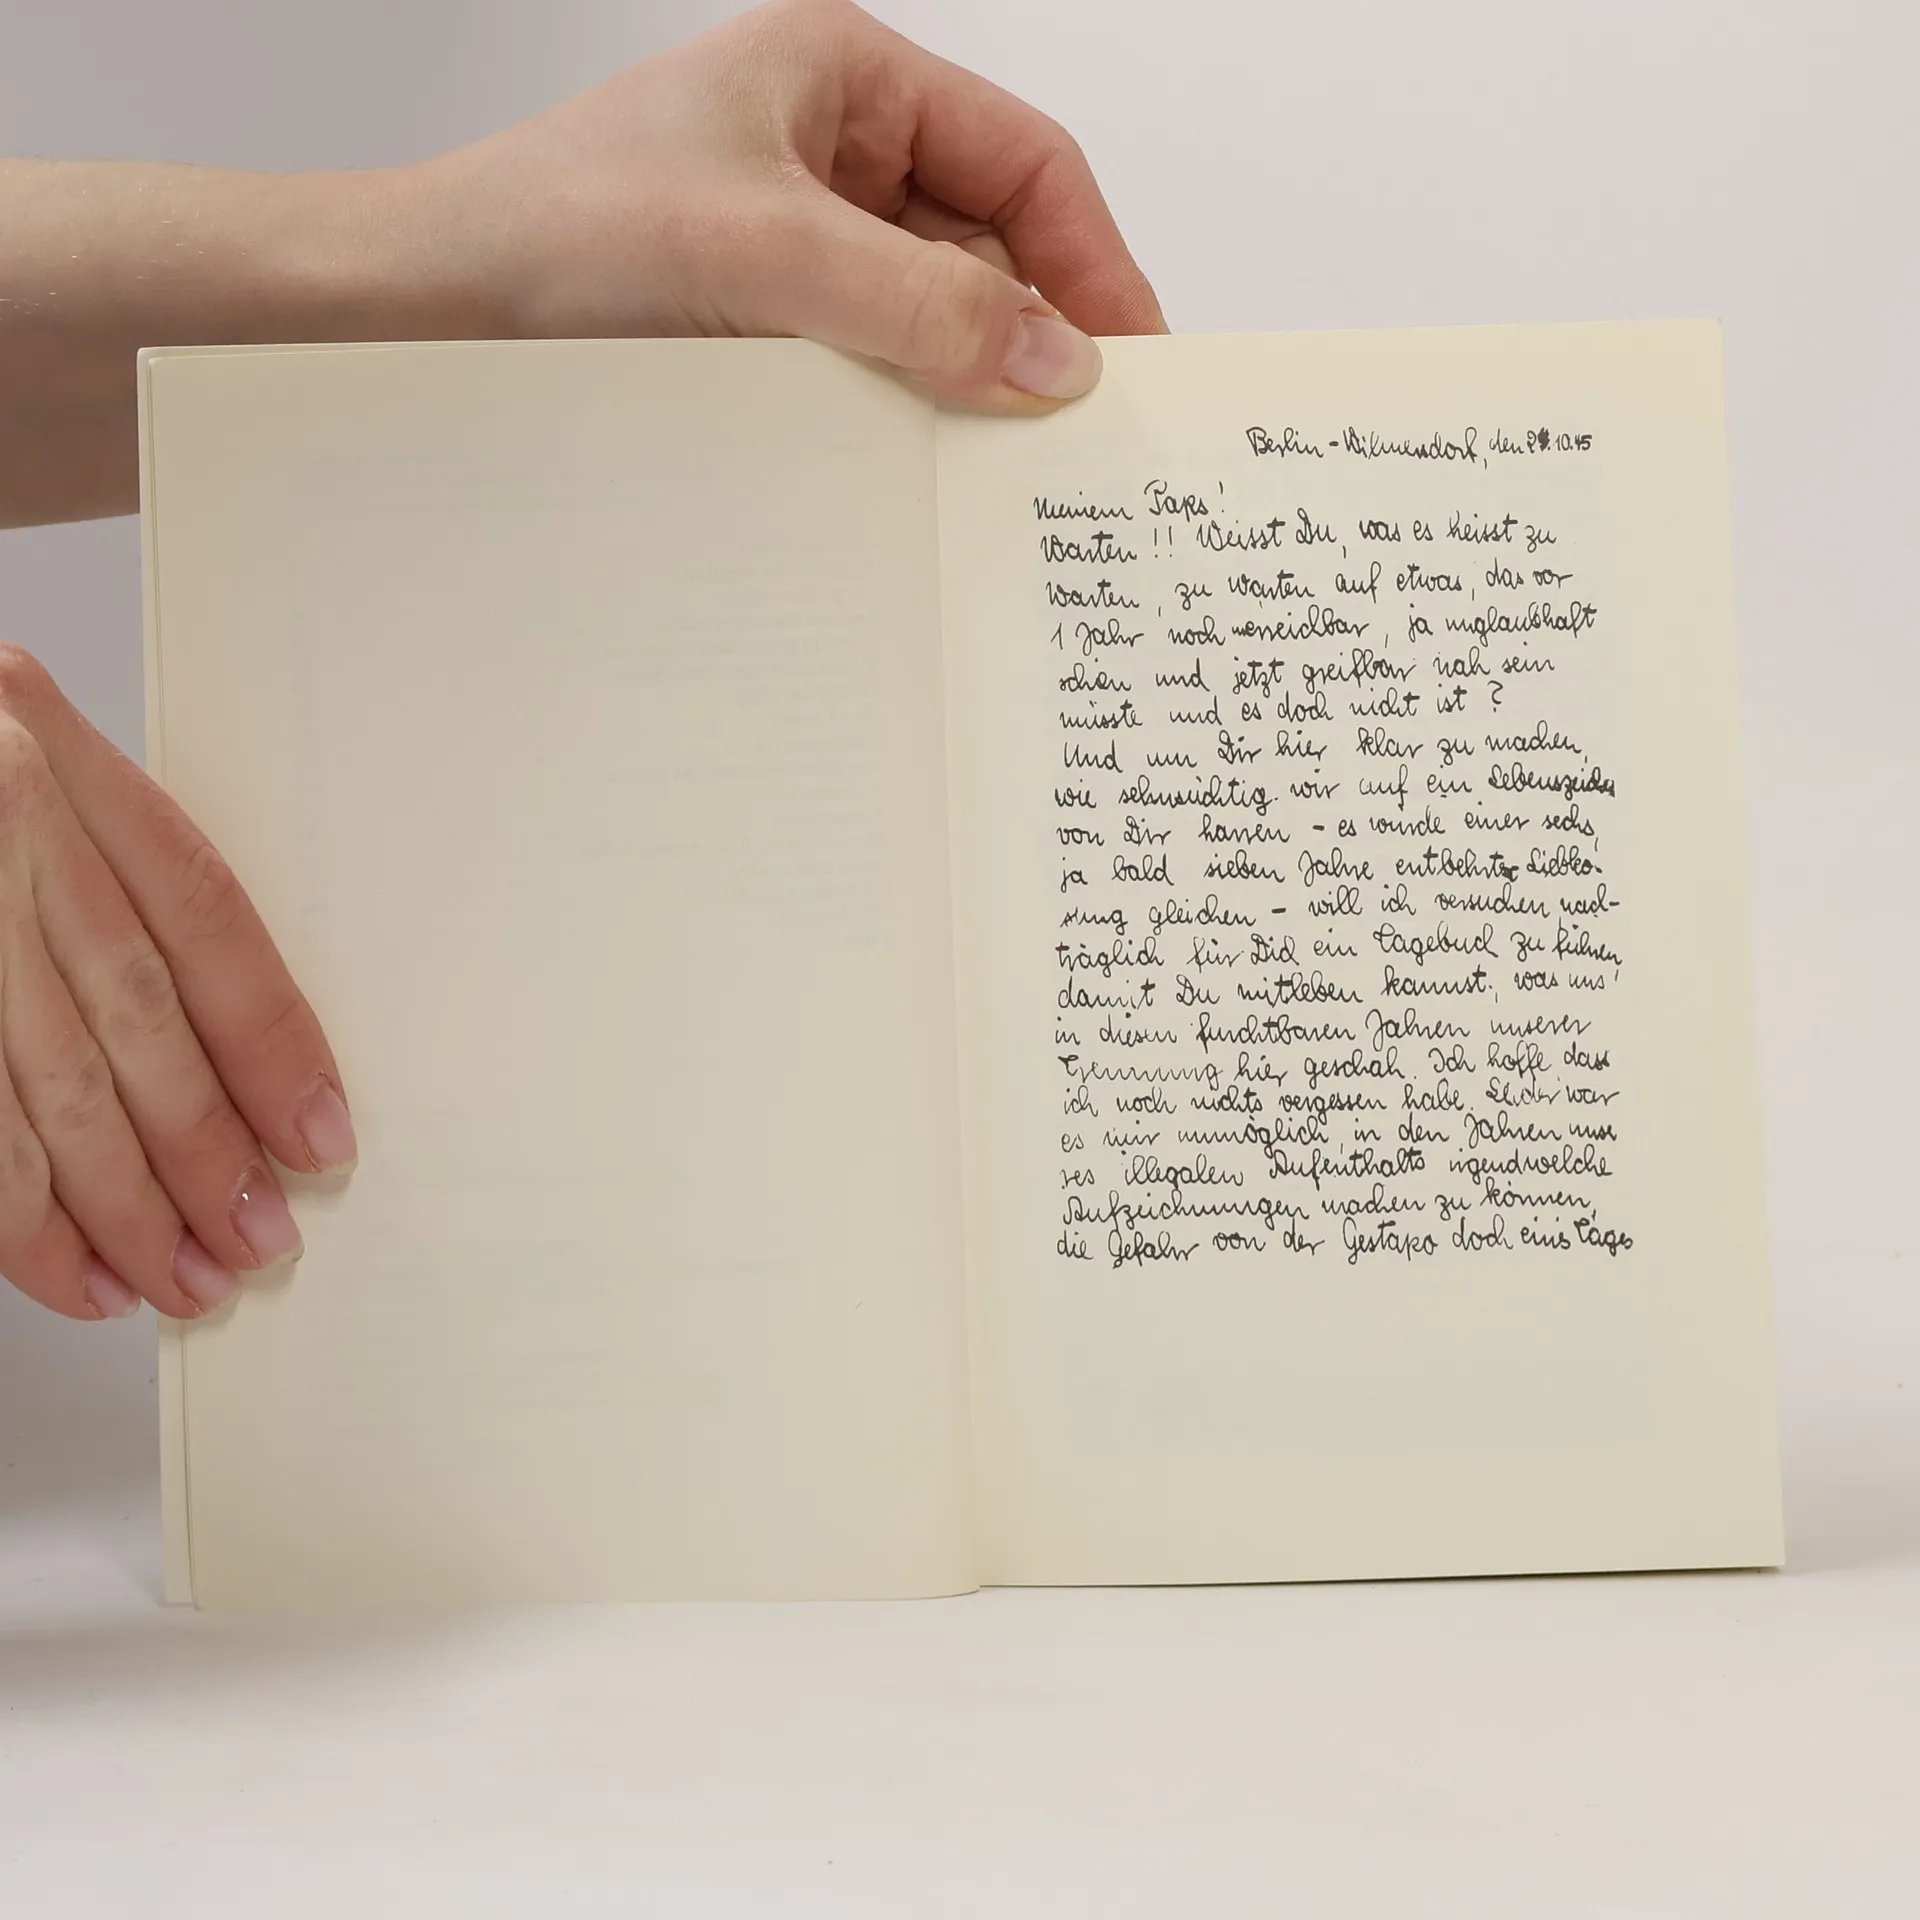 Berlin-Wilmersdorf, den 10.45
Meinem Paps!
Warten!! Weisst Du, was es heisst zu
warten, zu warten auf etwas, das vor
1 Jahr noch unerreichbar, ja unglaubhaft
schien und jetzt greifbar nah sein
müsste und es doch nicht ist?
Und um Dir hier klar zu machen,
wie sehnsüchtig wir auf ein Lebenszeichen
von Dir harren - es würde einer sechs,
ja bald sieben Jahre entbehrter Liebko-
sung gleichen - will ich versuchen nach-
träglich für Dich ein Tagebuch zu führen,
damit Du mitleben kannst, was uns
in diesen furchtbaren Jahren unserer
Trennung hier geschah. Ich hoffe dass
ich noch nichts vergessen habe. Leider war
es mir unmöglich, in den Jahren unse
res illegalen Aufenthalts irgendwelche
Aufzeichnungen machen zu können,
die Gefahr von der Gestapo doch eines Tages